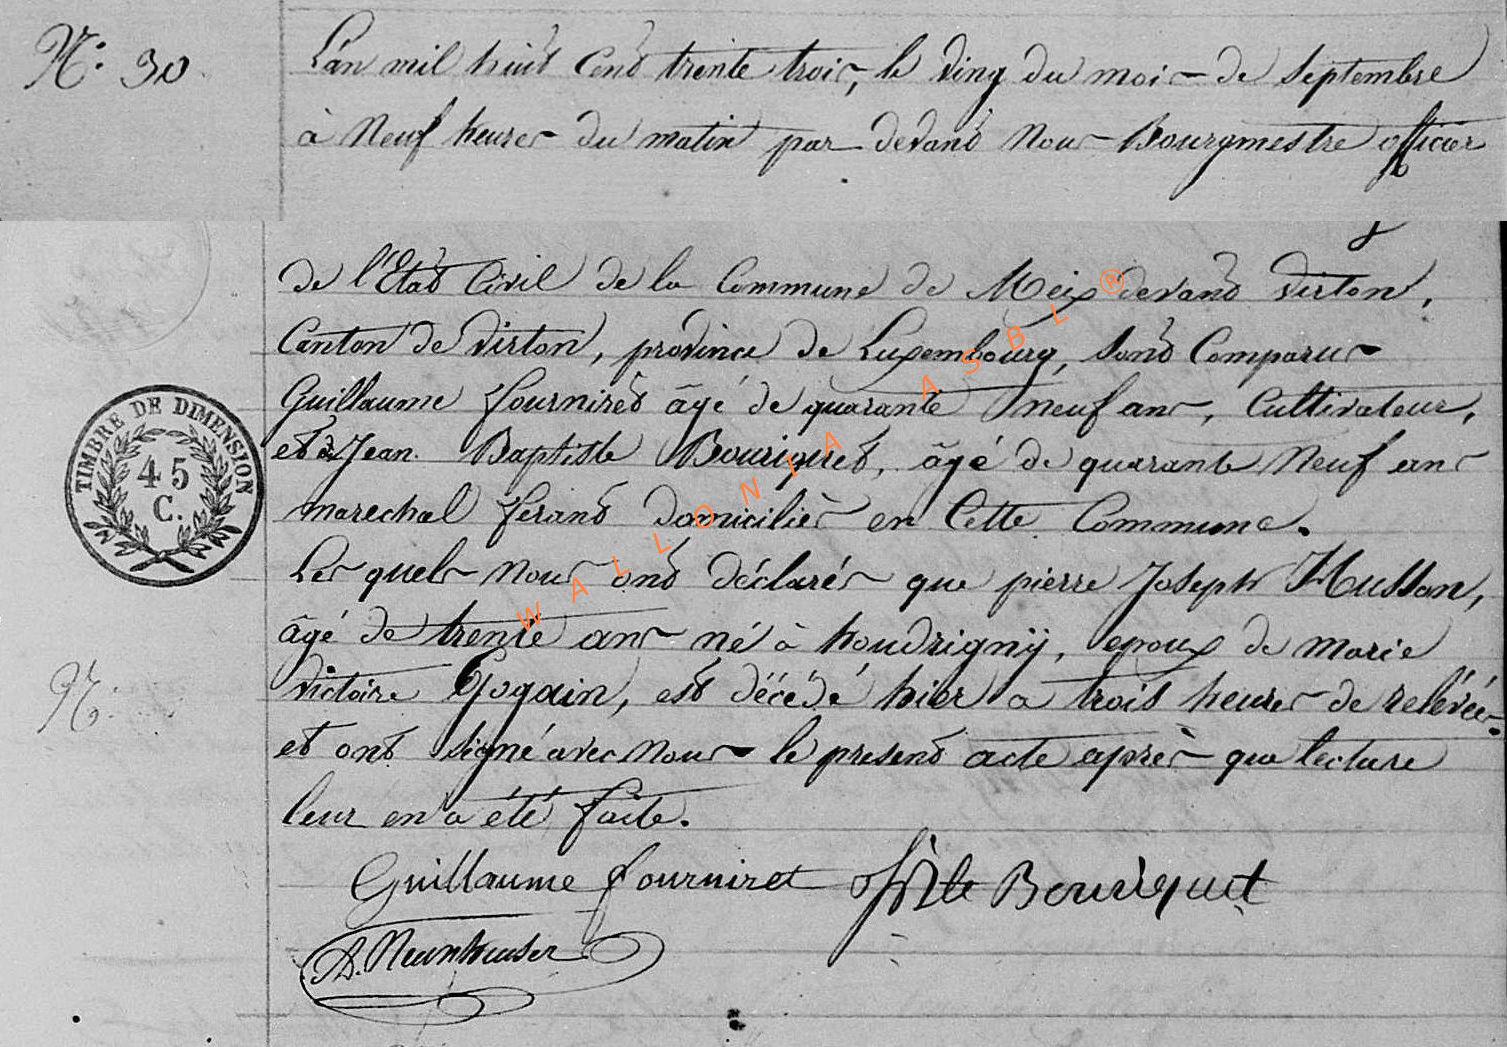 N.° 30
L'an mil huit Cent trente trois, le Ving du mois de Septembre
à Neuf heures du matin par devant Nous Bourgmestre officier
de l'Etat Civil de la Commune de Meix devant Virton,
Canton de Virton, province de Luxembourg, sont Comparus
Guillaume fourniret âgé de quarante neuf ans, Cultivateur,
TIMBRE DE DIMENSION
45
C.
et Jean Baptiste Bouriquet, âgé de quarante Neuf ans
marechal ferant domiciliés en Cette Commune.
Les quels Nous ont déclarés que pierre Joseph Husson,
âgé de trente ans né à houdrigny, epoux de marie
victoire Gogain, est décédé hier a trois heures de relévée
N.°
et ont signé avec Nous le present acte après que lecture
leur en a été faite.
Guillaume fourniret
Bouriquet
Neunheuser
WALLONIA ASBL ®